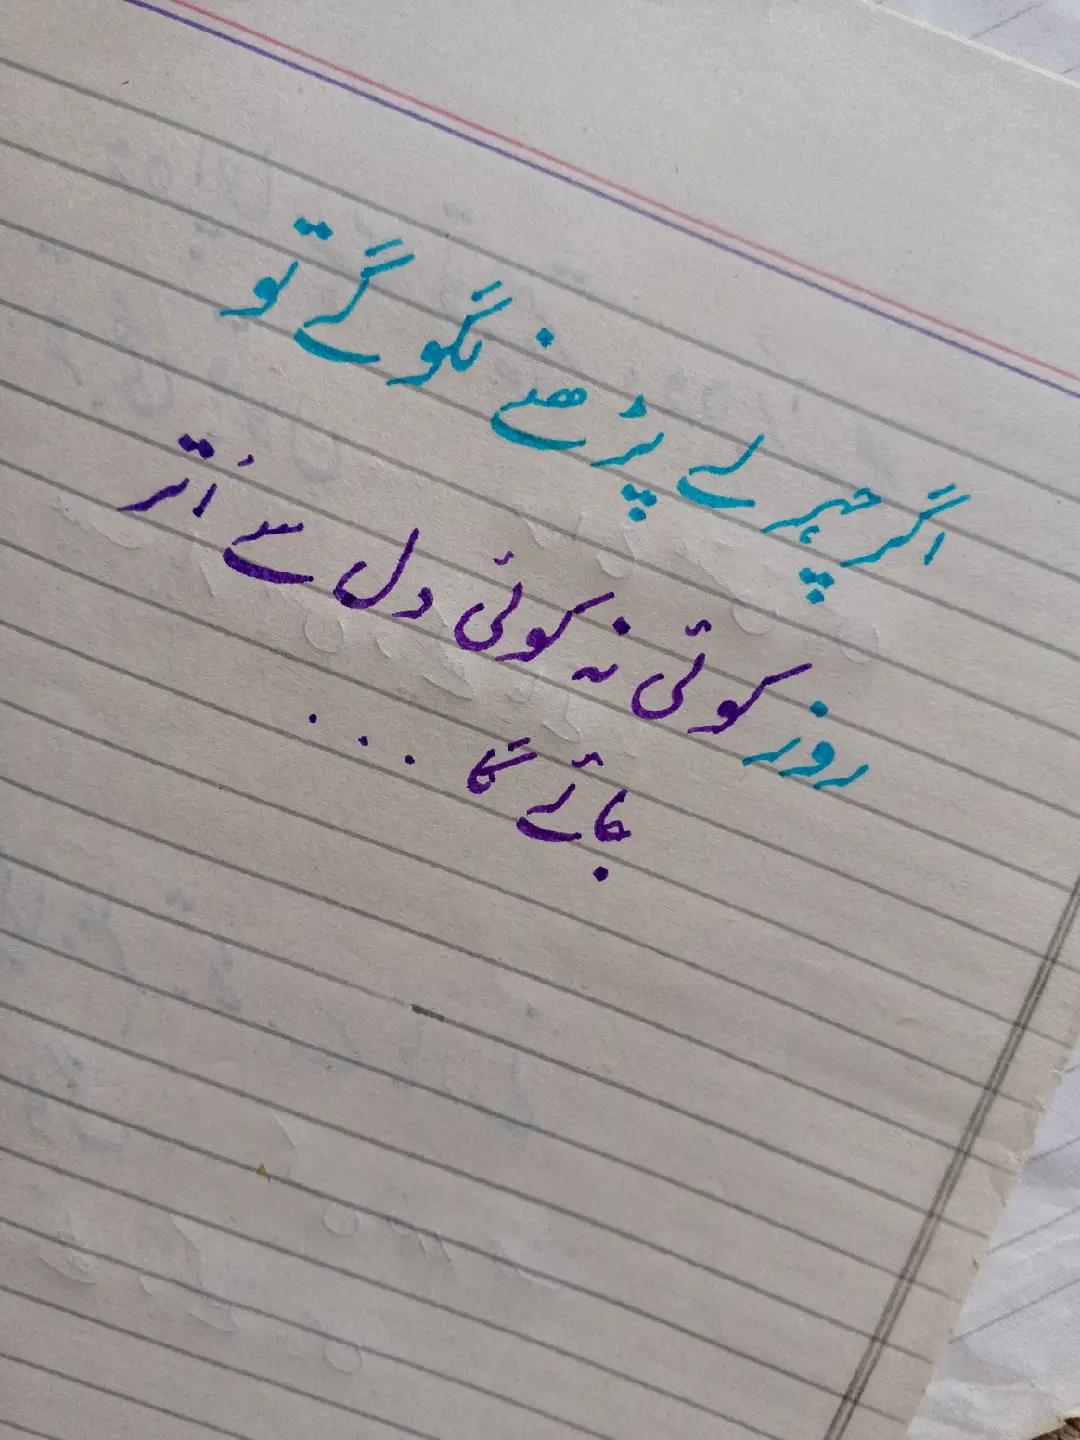 اگر چہرے پڑھنے لگو گے تو
روز کوئی نہ کوئی دل سے اُتر
جائے گا...